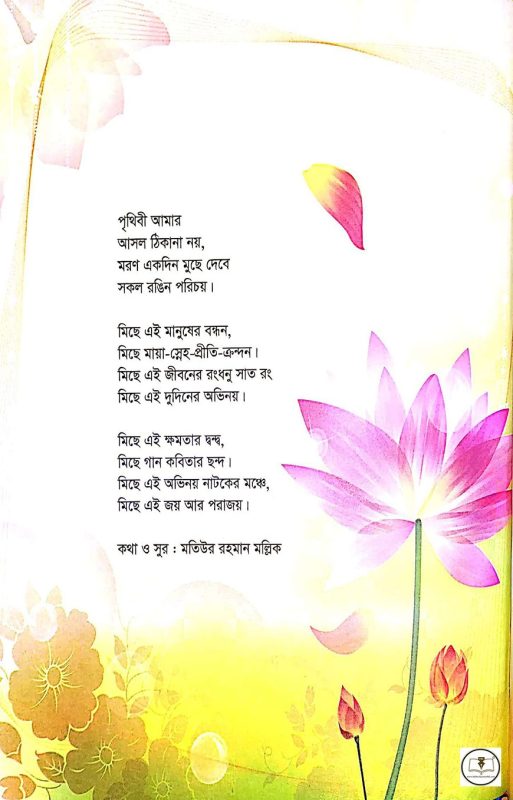 পৃথিবী আমার
আসল ঠিকানা নয়,
মরণ একদিন মুছে দেবে
সকল রঙিন পরিচয়।
মিছে এই মানুষের বন্ধন,
মিছে মায়া-স্নেহ-প্রীতি-ক্রন্দন।
মিছে এই জীবনের রংধনু সাত রং
মিছে এই দুদিনের অভিনয়।
মিছে এই ক্ষমতার দ্বন্দ্ব,
মিছে গান কবিতার ছন্দ।
মিছে এই অভিনয় নাটকের মঞ্চে,
মিছে এই জয় আর পরাজয়।
কথা ও সুর : মতিউর রহমান মল্লিক